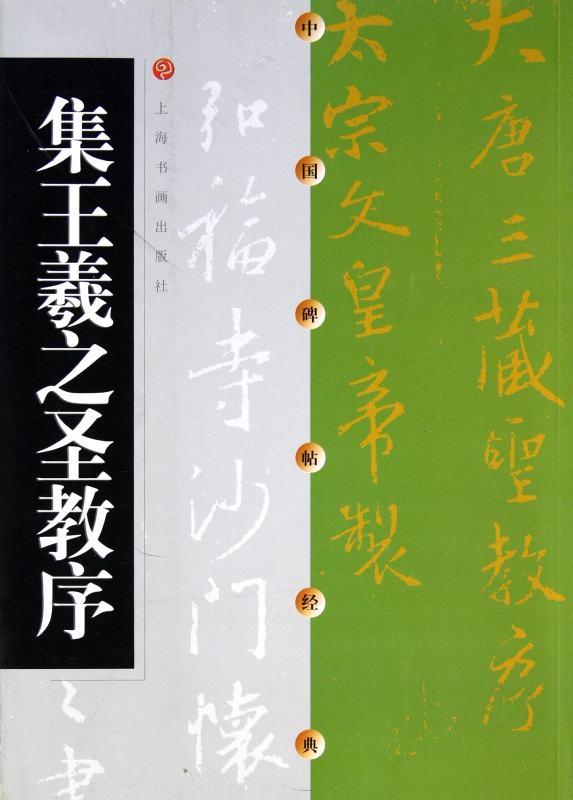 大唐三藏聖教序
太宗文皇帝製
中国碑帖经典
弘福寺沙门懷
上海书画出版社
集王羲之圣教序
之書